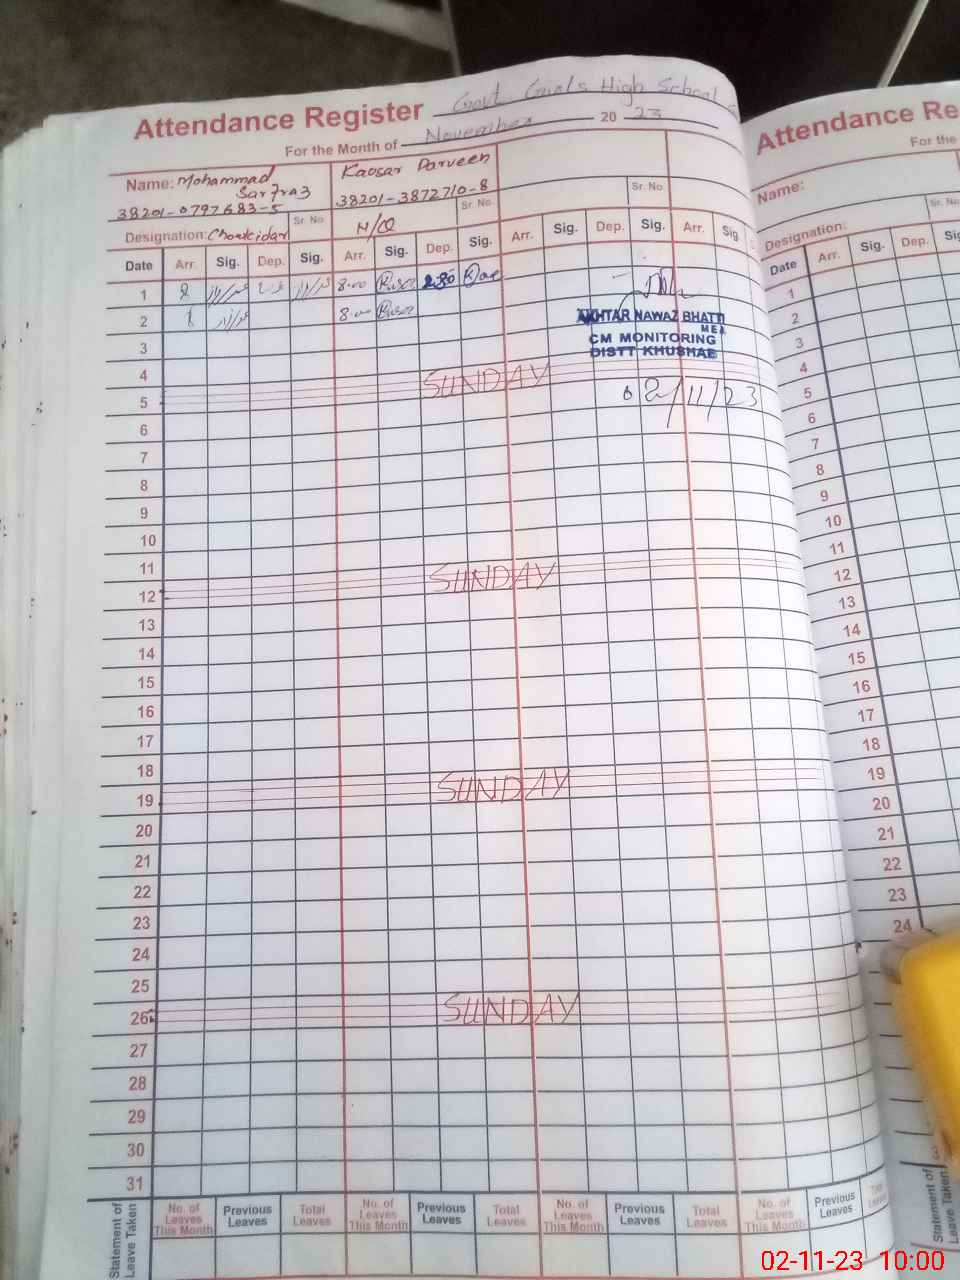 Attendance Register Govt. Girls High School
For the Month of November 20 23
Name: Mohammad Sarfraz
38201-0797683-5
Sr. No
Designation: Chowkidar
Kausar Parveen
38201-3872710-8
Sr. No.
N/Q
Sr. No
Date Arr. Sig. Dep. Sig. Arr. Sig. Dep. Sig. Arr. Sig. Dep. Sig. Arr. Sig.
1 8 8.00 2.30
2 8 8.00
3
4
5 SUNDAY
6
7
8
9
10
11
12 SUNDAY
13
14
15
16
17
18
19 SUNDAY
20
21
22
23
24
25
26 SUNDAY
27
28
29
30
31
AKHTAR NAWAZ BHATTI
MEA
CM MONITORING
DISTT KHUSHAB
02/11/23
Statement of Leave Taken
No. of Leaves This Month Previous Leaves Total Leaves No. of Leaves This Month Previous Leaves Total Leaves No. of Leaves This Month Previous Leaves Total Leaves No. of Leaves This Month Previous Leaves
Attendance Re
For the
Name:
Sr. No.
Designation:
Date Arr. Sig. Dep. Sig.
1
2
3
4
5
6
7
8
9
10
11
12
13
14
15
16
17
18
19
20
21
22
23
24
Statement of Leave Taken
02-11-23 10:00